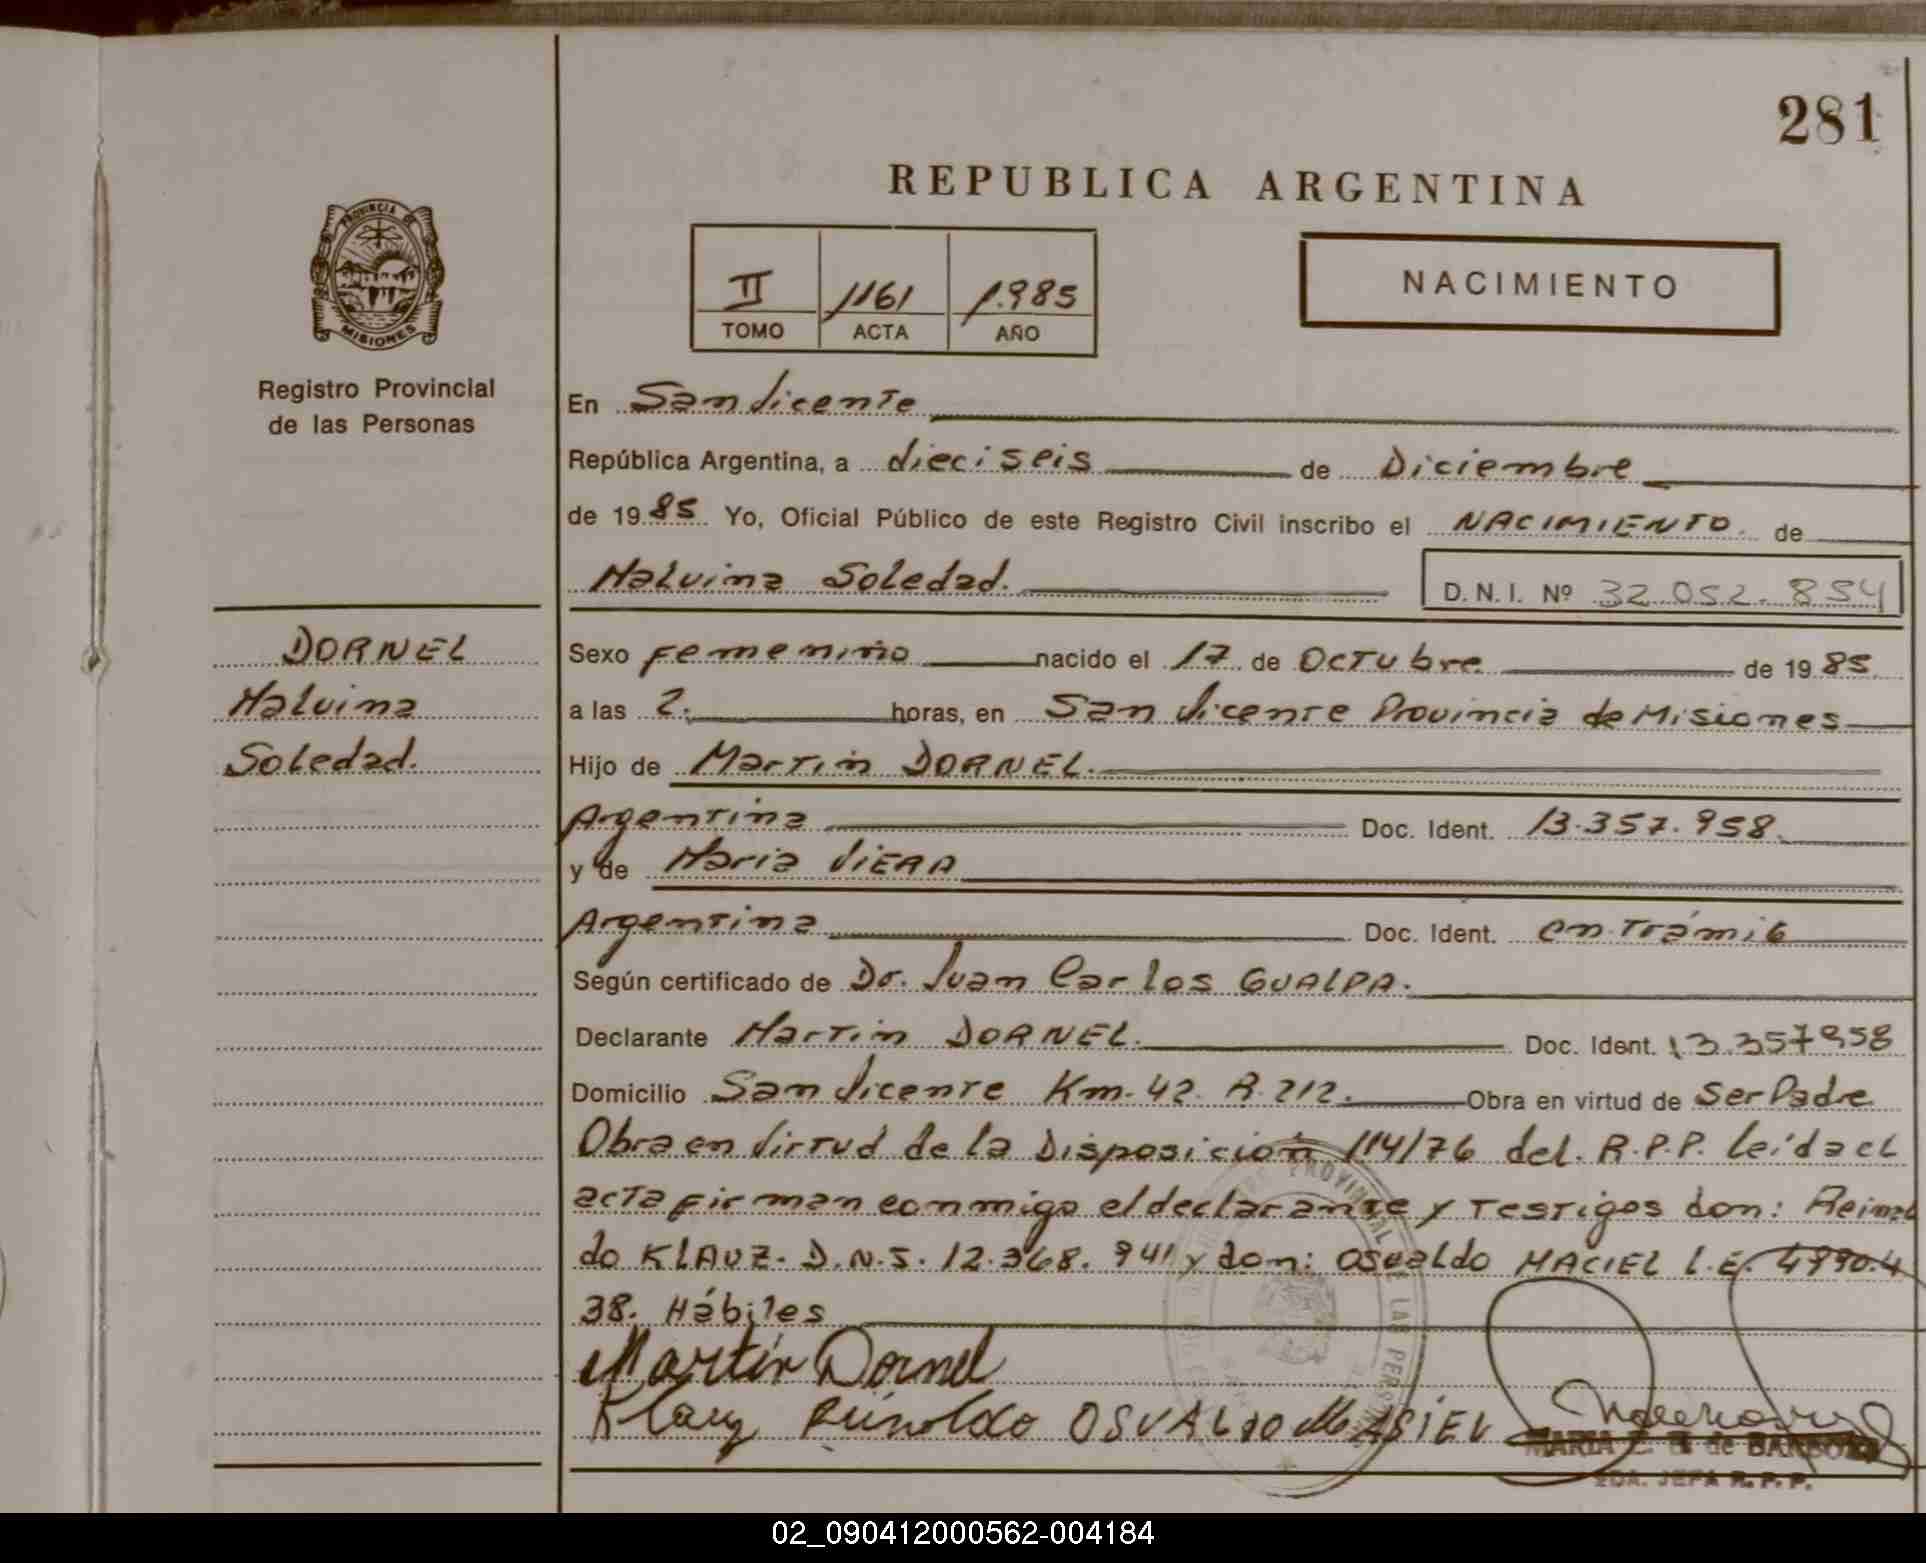 281
REPUBLICA ARGENTINA
PROVINCIA DE
MISIONES
II 1161 1.985
TOMO ACTA AÑO
NACIMIENTO
Registro Provincial
de las Personas
En San Vicente
República Argentina, a dieciseis de Diciembre
de 1985 Yo, Oficial Público de este Registro Civil inscribo el NACIMIENTO de
Malvina Soledad. D. N. I. Nº 32.052.854
DORNEL
Malvina
Soledad.
Sexo femenino nacido el 17 de Octubre de 1985
a las 2. horas, en San Vicente Provincia de Misiones
Hijo de Martin DORNEL.
Argentina Doc. Ident. 13.357.958
y de Maria VIERA
Argentina Doc. Ident. en trámite
Según certificado de Dr. Juan Carlos GUALPA.
Declarante Martin DORNEL. Doc. Ident. 13.357958
Domicilio San Vicente Km. 42. R. 212. Obra en virtud de Ser Padre
Obra en Virtud de la Disposición 114/76 del. R.P.P. leída el
acta firman conmigo el declarante y Testigos don: Reinol
do KLAUZ. D.N.I. 12.368.941 y don: Osvaldo MACIEL L.E. 4990.4
38. Hábiles
Martin Dornel
Klauz Reinoldo OSVALDO MASIEL
MARIA E. B de BARBOZA
2DA. JEFA R. P. P.
02_090412000562-004184